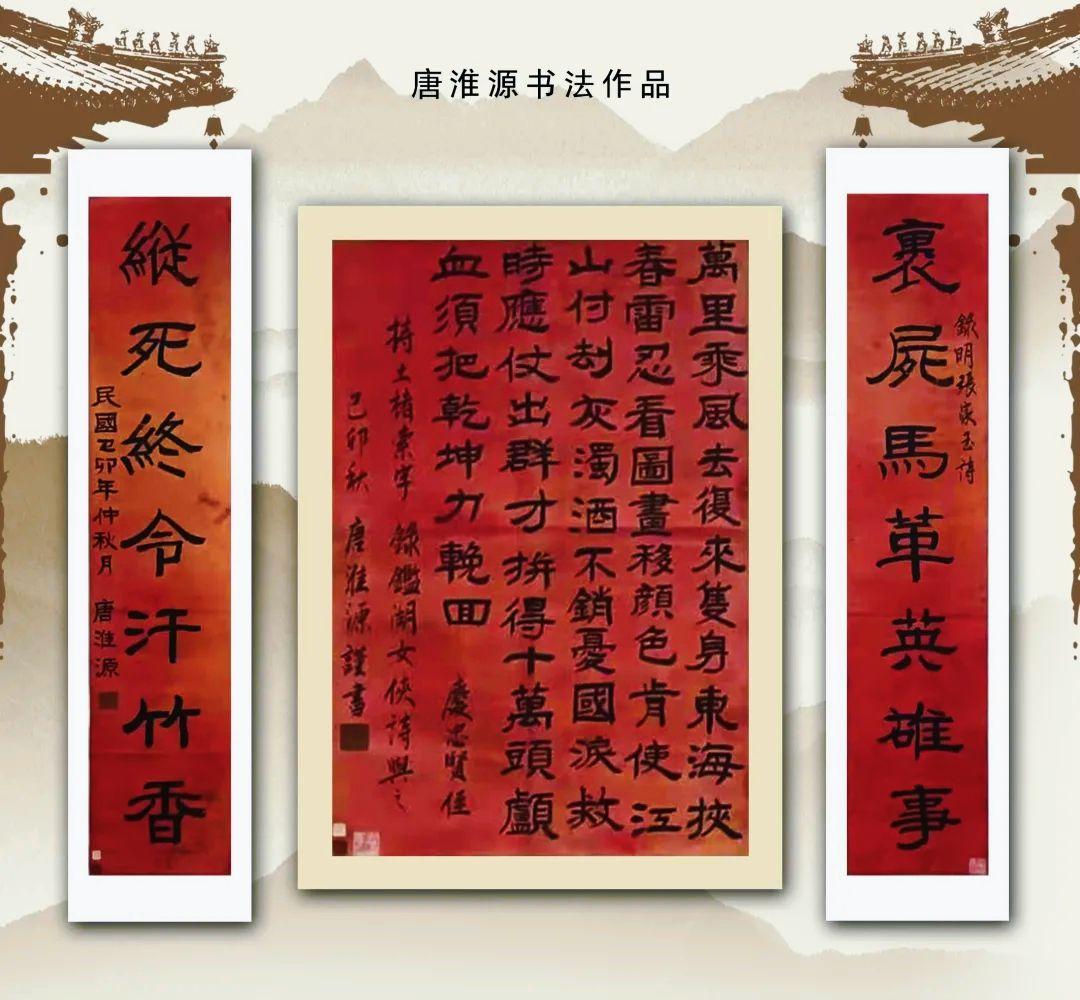 唐淮源书法作品
裹屍馬革英雄事
錄明張家玉詩
萬里乘風去復來隻身東海挾
春雷忍看圖畫移顔色肯使江
山付刧灰濁酒不銷憂國淚救
時應仗出群才拚得十萬頭顱
血須把乾坤力輓回 慶忠賢侄
持土楮索字 錄鑑湖女俠詩與之
己卯秋 唐淮源謹書
縱死終令汗竹香
民國己卯年仲秋月 唐淮源